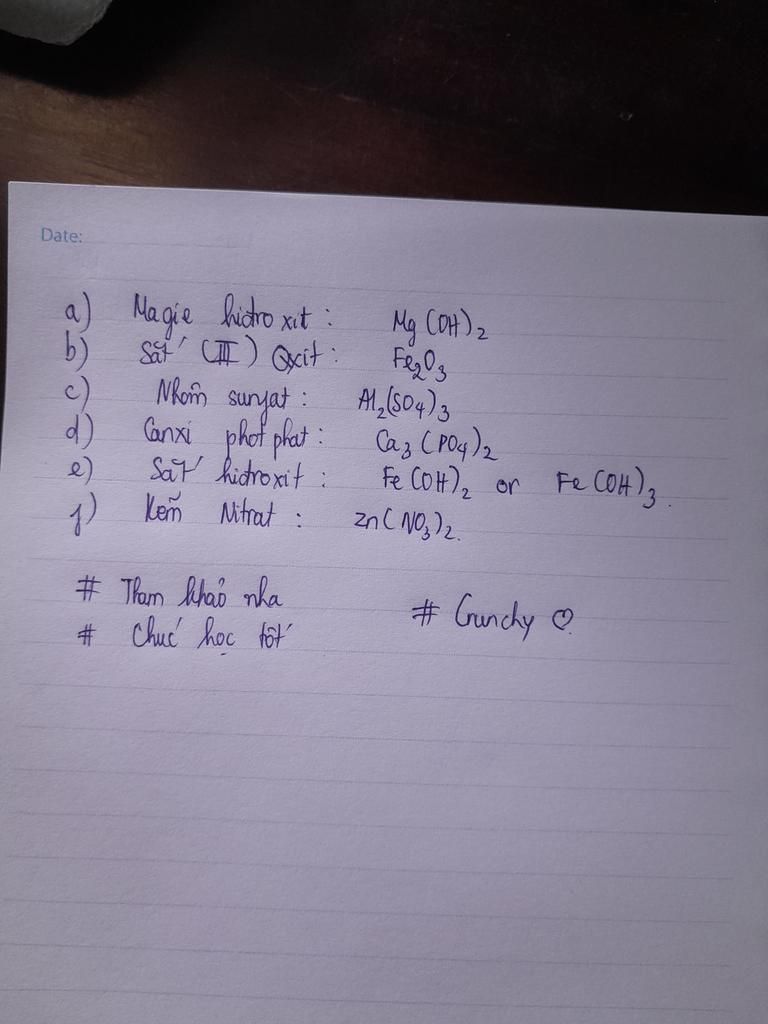 Date:
a) Magie hidroxit : Mg(OH)2
b) Sắt (III) Oxit : Fe2O3
c) Nhôm sunfat : Al2(SO4)3
d) Canxi photphat : Ca3(PO4)2
e) Sắt hidroxit : Fe(OH)2 or Fe(OH)3.
f) Kẽm Nitrat : Zn(NO3)2.
# Tham khảo nha
# Crunchy ♡
# Chúc học tốt